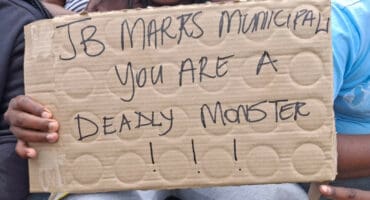 JB MARKS MUNICIPALI
YOU ARE A
DEADLY MONSTER
! ! !